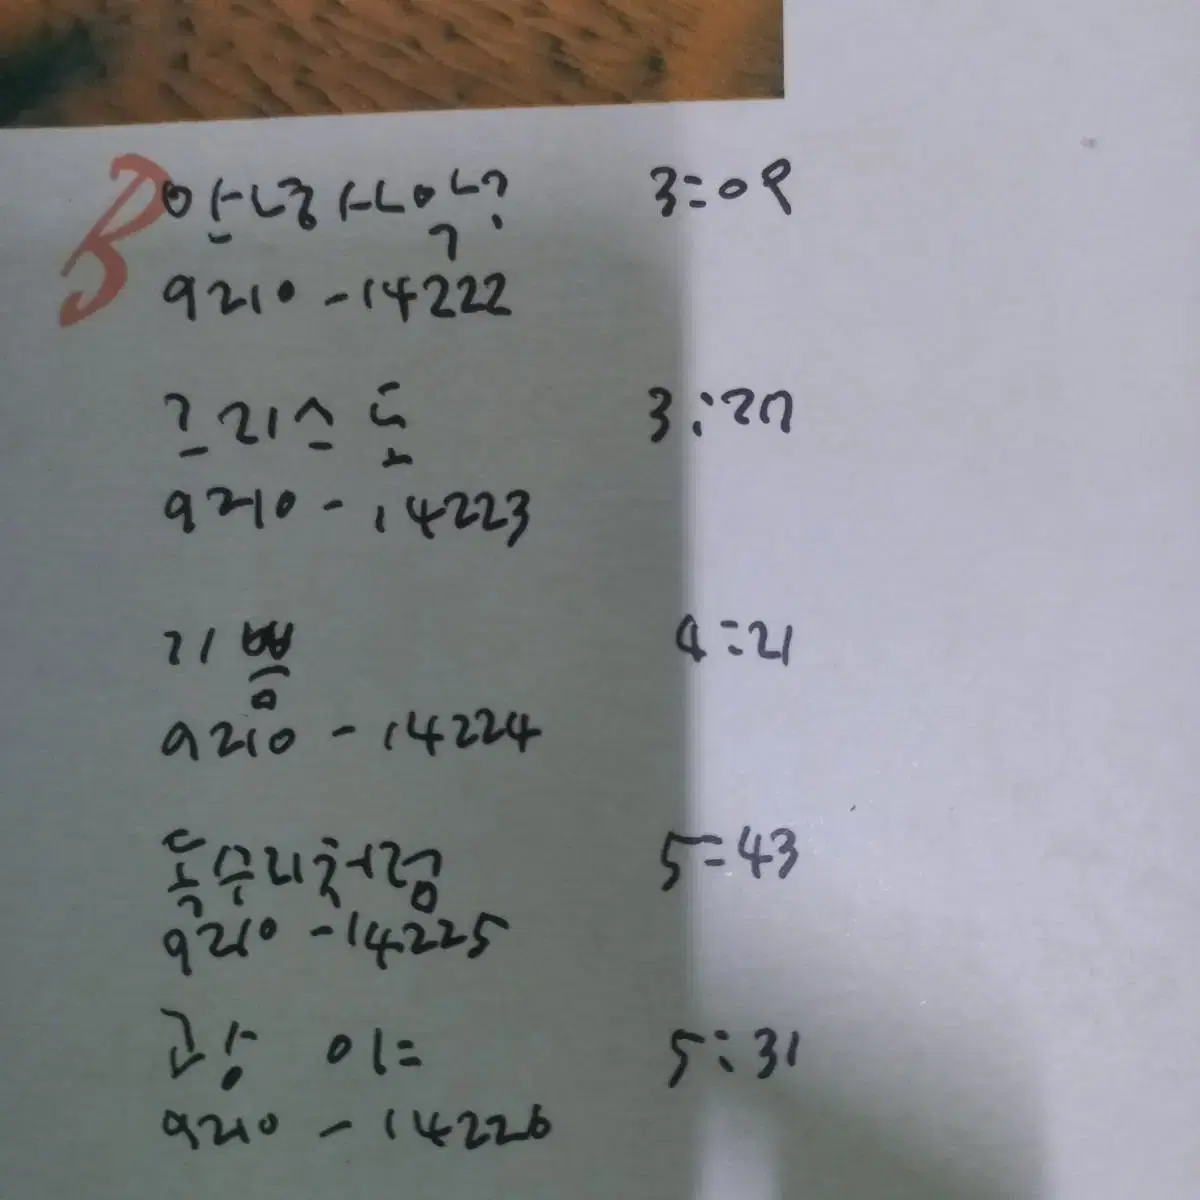 B 안녕 3:09
9210-14222
그리스도 3:27
9210-14223
기쁨 4:21
9210-14224
독수리처럼 5:43
9210-14225
광야 5:31
9210-14226